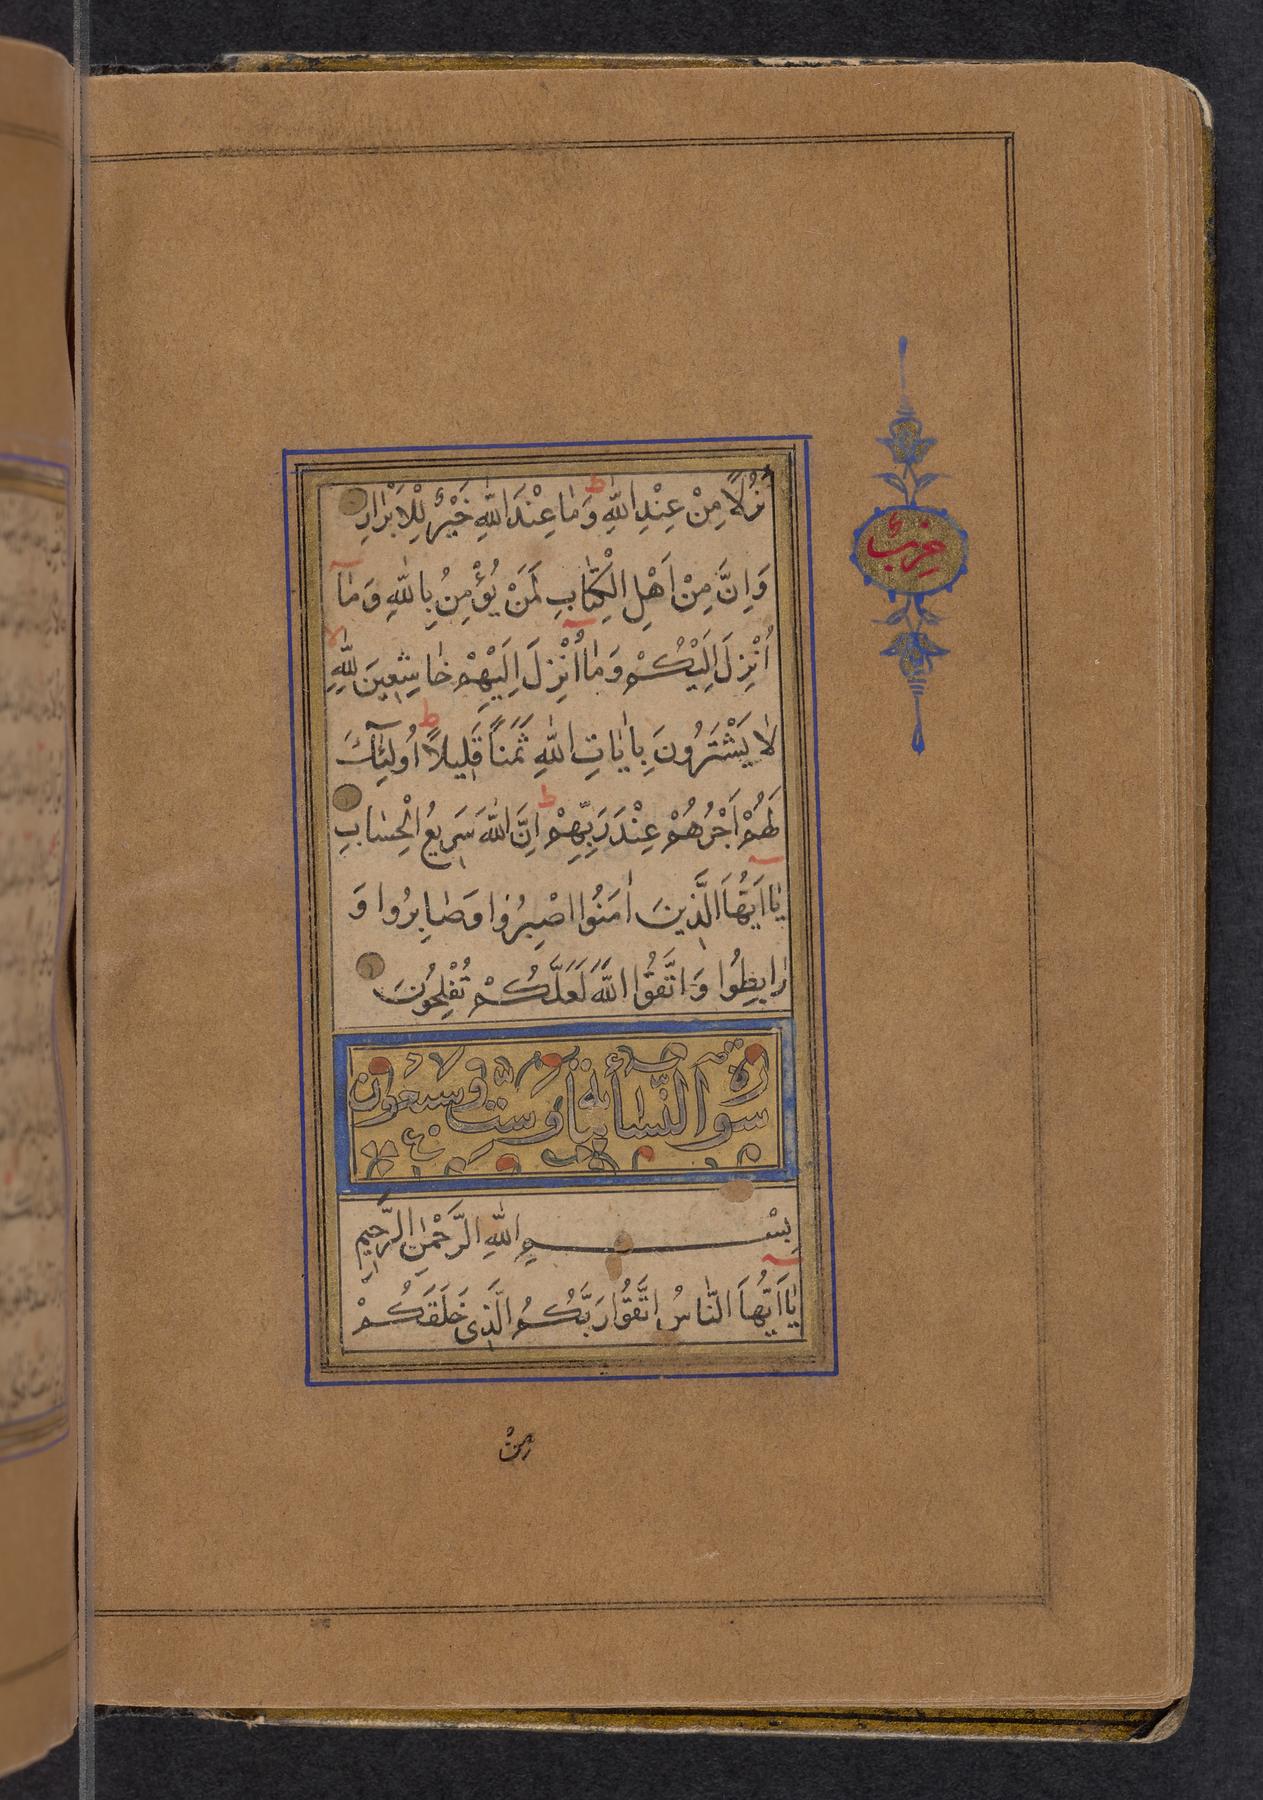 نُزُلًا مِنْ عِنْدِ اللّٰهِ وَمٰا عِنْدَ اللّٰهِ خَيْرٌ لِلْاَبْرٰارِ
وَاِنَّ مِنْ اَهْلِ الْكِتٰابِ لَمَنْ يُؤْمِنُ بِاللّٰهِ وَمٰآ
اُنْزِلَ اِلَيْكُمْ وَمٰآ اُنْزِلَ اِلَيْهِمْ خٰاشِعِينَ لِلّٰهِ
لٰا يَشْتَرُونَ بِاٰيٰاتِ اللّٰهِ ثَمَنًا قَلِيلًا اُولٰئِكَ
لَهُمْ اَجْرُهُمْ عِنْدَ رَبِّهِمْ اِنَّ اللّٰهَ سَرِيعُ الْحِسٰابِ
يٰآ اَيُّهَا الَّذِينَ اٰمَنُوا اصْبِرُوا وَصٰابِرُوا وَ
رٰابِطُوا وَاتَّقُوا اللّٰهَ لَعَلَّكُمْ تُفْلِحُونَ
سورة النساء مائة وست وسبعون
بِسْمِ اللّٰهِ الرَّحْمٰنِ الرَّحِيمِ
يٰآ اَيُّهَا النّٰاسُ اتَّقُوا رَبَّكُمُ الَّذِى خَلَقَكُمْ
مِنْ